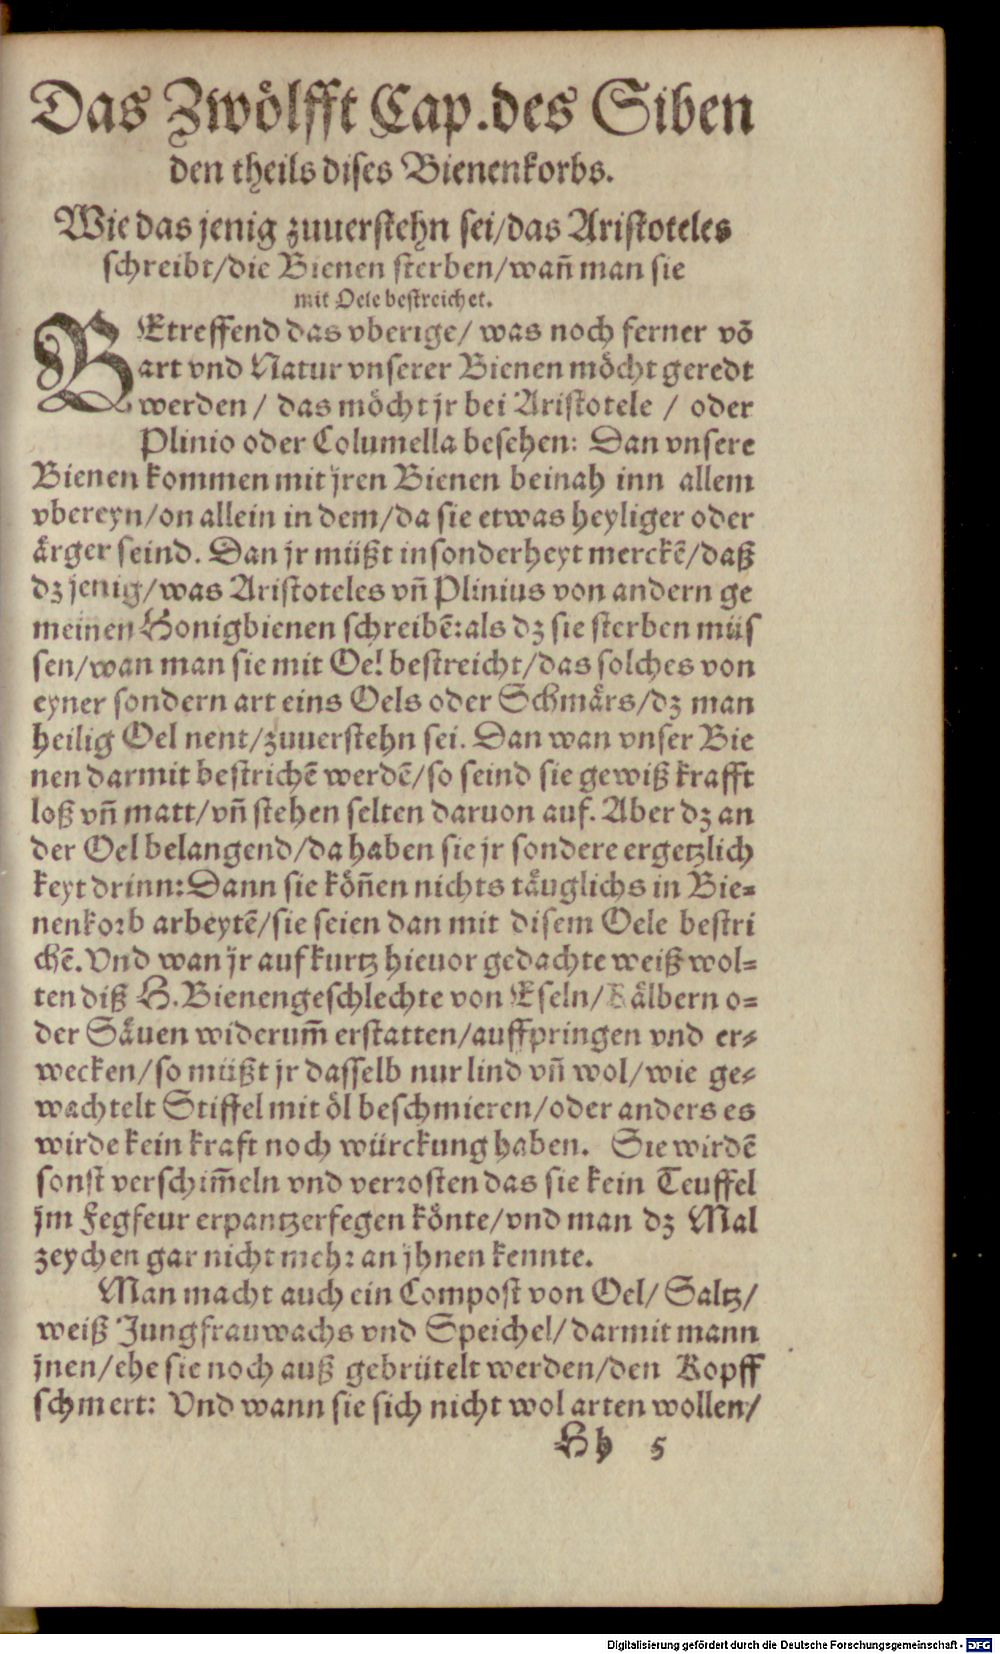 Das Zwölfft Cap. des Siben
den theils dises Bienenkorbs.
Wie das jenig zuuerstehn sei/das Aristoteles
schreibt/die Bienen sterben/wañ man sie
mit Oele bestreichet.
BEtreffend das vberige/ was noch ferner võ
art vnd Natur vnserer Bienen möcht geredt
werden / das möcht jr bei Aristotele / oder
Plinio oder Columella besehen: Dan vnsere
Bienen kommen mit jren Bienen beinah inn allem
vbereyn/on allein in dem/da sie etwas heyliger oder
ärger seind. Dan jr müßt insonderheyt merckẽ/daß
dz jenig/was Aristoteles vñ Plinius von andern ge
meinen Honigbienen schreibẽ:als dz sie sterben müs
sen/wan man sie mit Oel bestreicht/das solches von
eyner sondern art eins Oels oder Schmärs/dz man
heilig Oel nent/zuuerstehn sei. Dan wan vnser Bie
nen darmit bestrichẽ werdẽ/so seind sie gewiß krafft
loß vñ matt/vñ stehen selten daruon auf. Aber dz an
der Oel belangend/da haben sie jr sondere ergetzlich
keyt drinn:Dann sie köñen nichts täuglichs in Bie-
nenkorb arbeytẽ/sie seien dan mit disem Oele bestri
chẽ. Vnd wan jr auf kurtz hieuor gedachte weiß wol-
ten diß H. Bienengeschlechte von Eseln/Kälbern o-
der Säuen widerum̃ erstatten/auffpringen vnd er-
wecken/so müßt jr dasselb nur lind vñ wol/wie ge-
wachtelt Stiffel mit öl beschmieren/oder anders es
wirde kein kraft noch würckung haben. Sie wirdẽ
sonst verschim̃eln vnd verrosten das sie kein Teuffel
jm Fegfeur erpantzerfegen könte/vnd man dz Mal
zeychen gar nicht mehr an jhnen kennte.
Man macht auch ein Compost von Oel/ Saltz/
weiß Jungfrauwachs vnd Speichel/ darmit mann
jnen/ehe sie noch auß gebrütelt werden/den Kopff
schmert: Vnd wann sie sich nicht wol arten wollen/
Hh 5
Digitalisierung gefördert durch die Deutsche Forschungsgemeinschaft - DFG